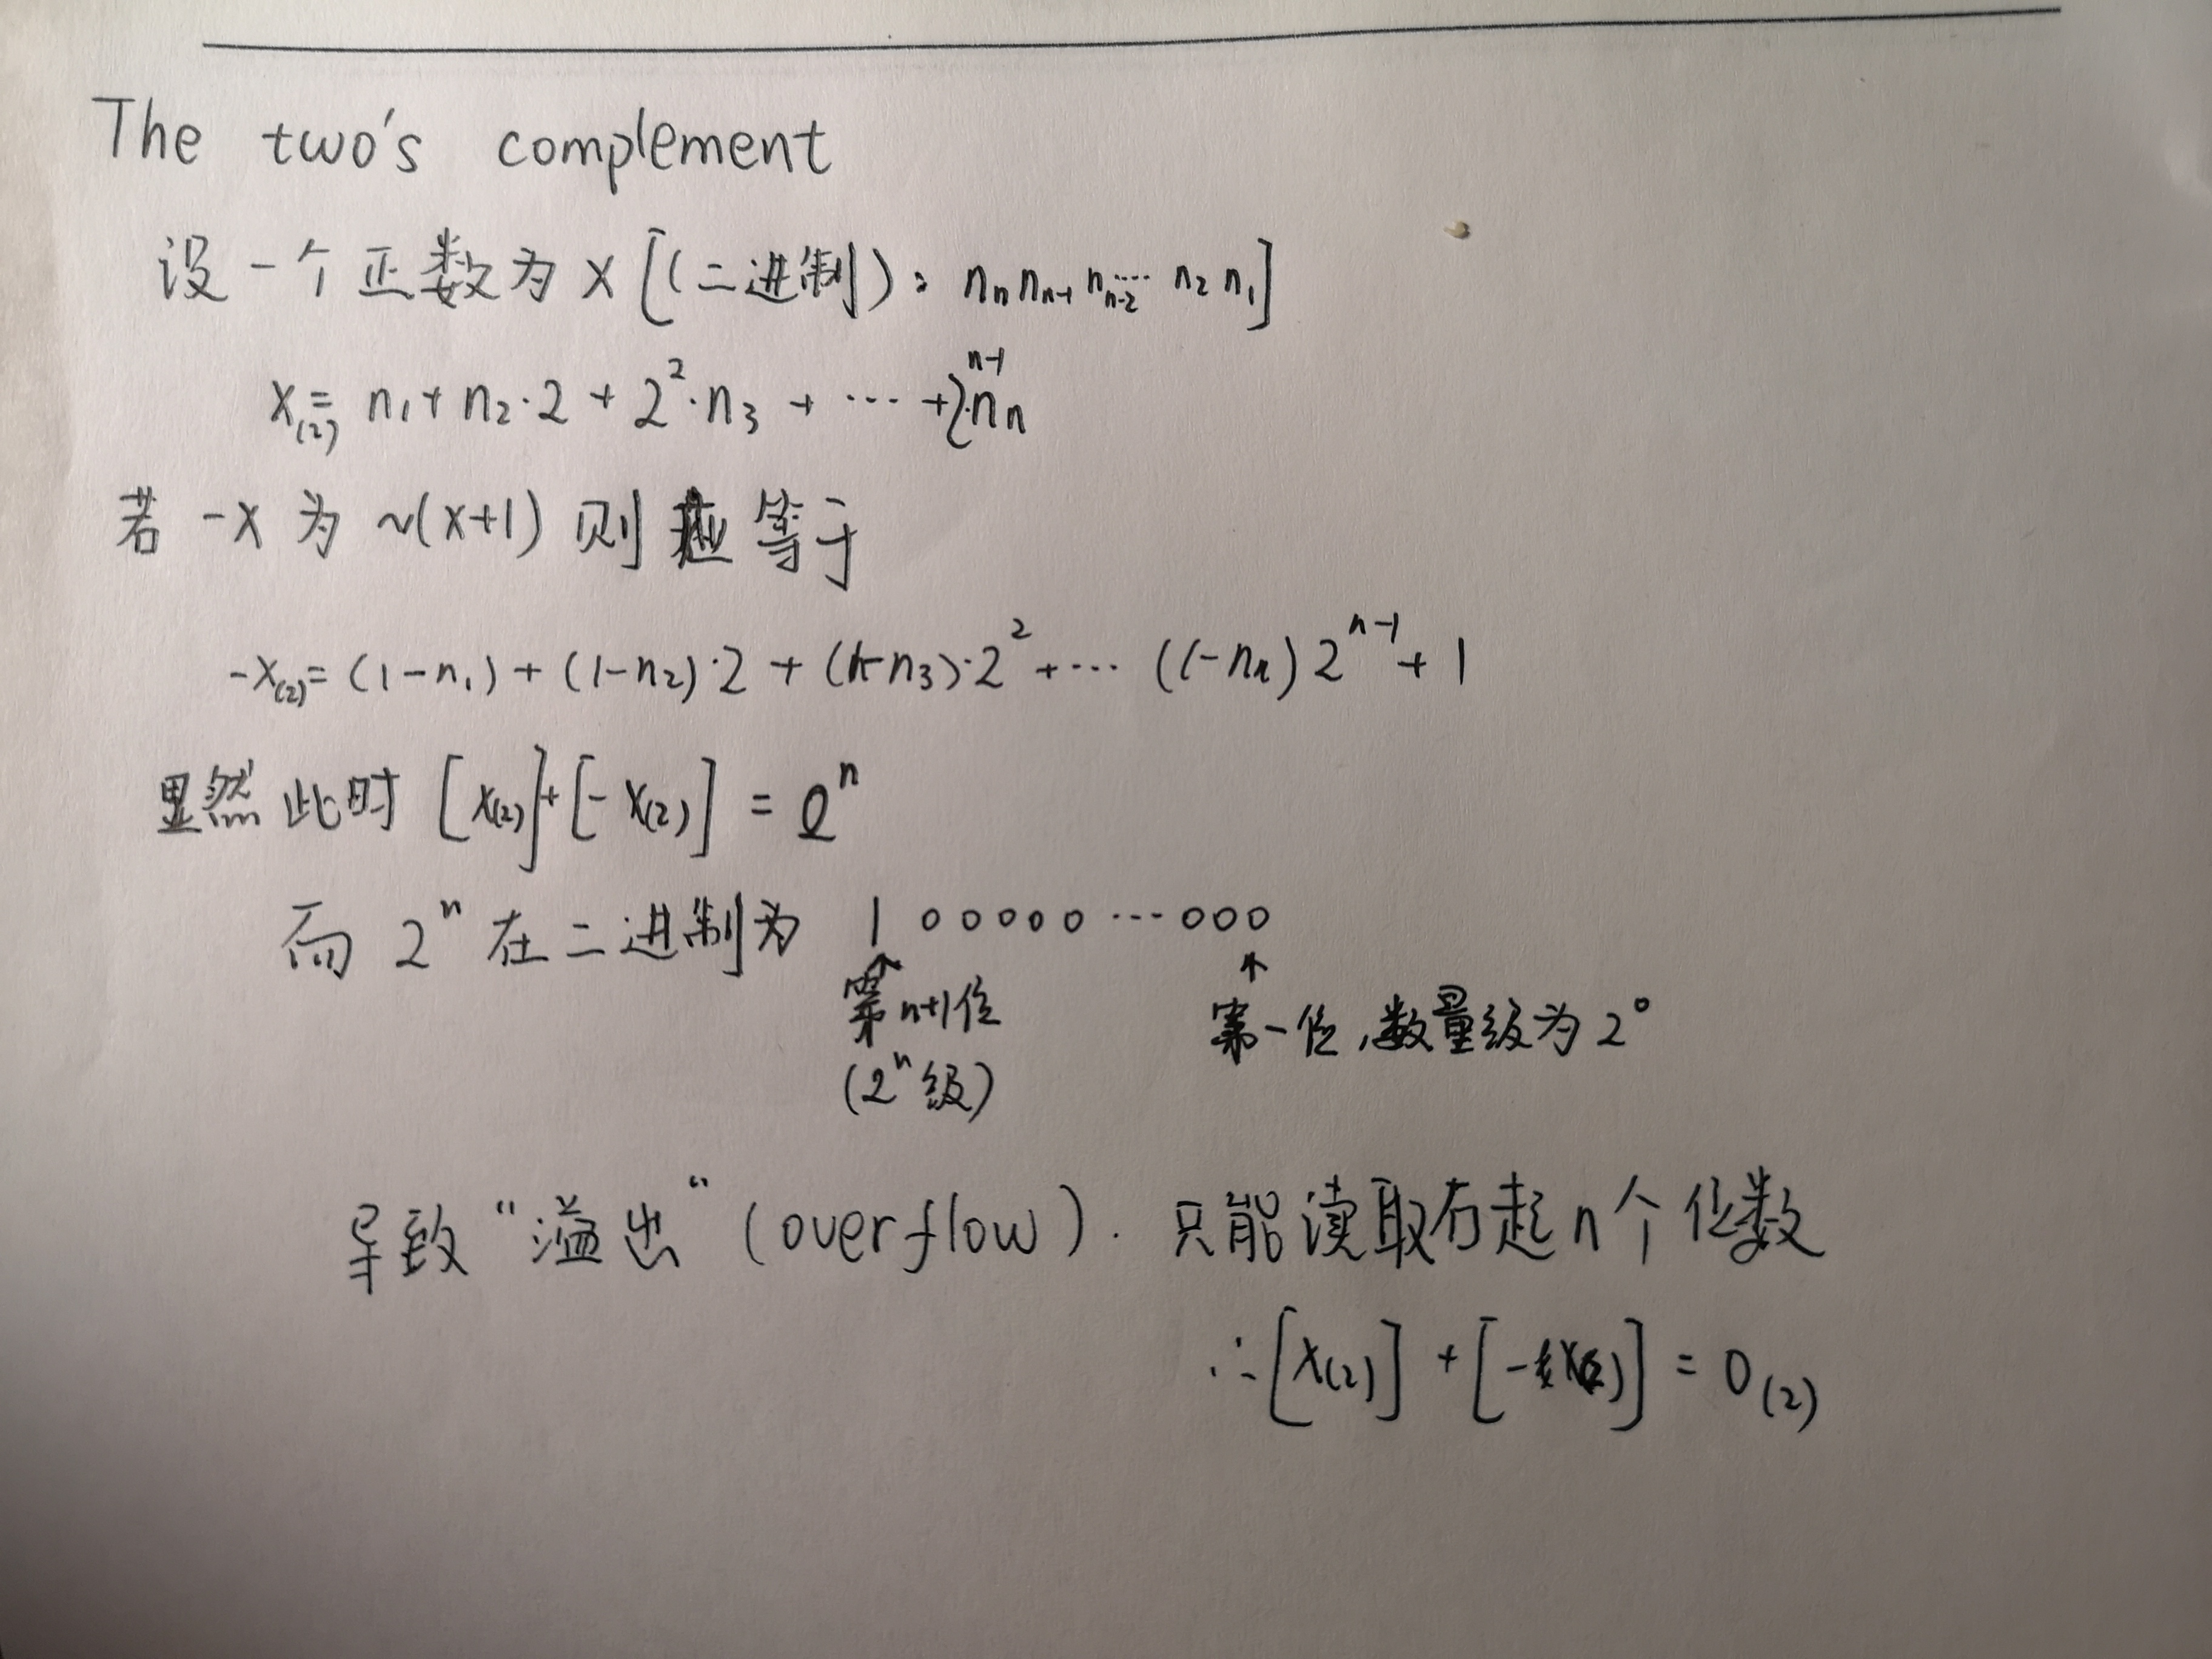 The two's complement
设一个正数为 X [(二进制): nₙ nₙ₋₁ nₙ₋₂ ⋯ n₂ n₁]
X₍₂₎ = n₁ + n₂·2 + 2²·n₃ + ⋯ + 2ⁿ⁻¹·nₙ
若 -X 为 ~(X+1) 则 等于
-X₍₂₎ = (1-n₁) + (1-n₂)·2 + (1-n₃)·2² + ⋯ (1-nₙ) 2ⁿ⁻¹ + 1
显然此时 [X₍₂₎] + [-X₍₂₎] = 2ⁿ
而 2ⁿ 在二进制为 1 0 0 0 0 0 ⋯ 0 0 0
第n+1位 第一位,数量级为 2⁰
(2ⁿ级)
导致“溢出“(overflow). 只能读取右起n个位数
∴ [X₍₂₎] + [-X₍₂₎] = 0₍₂₎